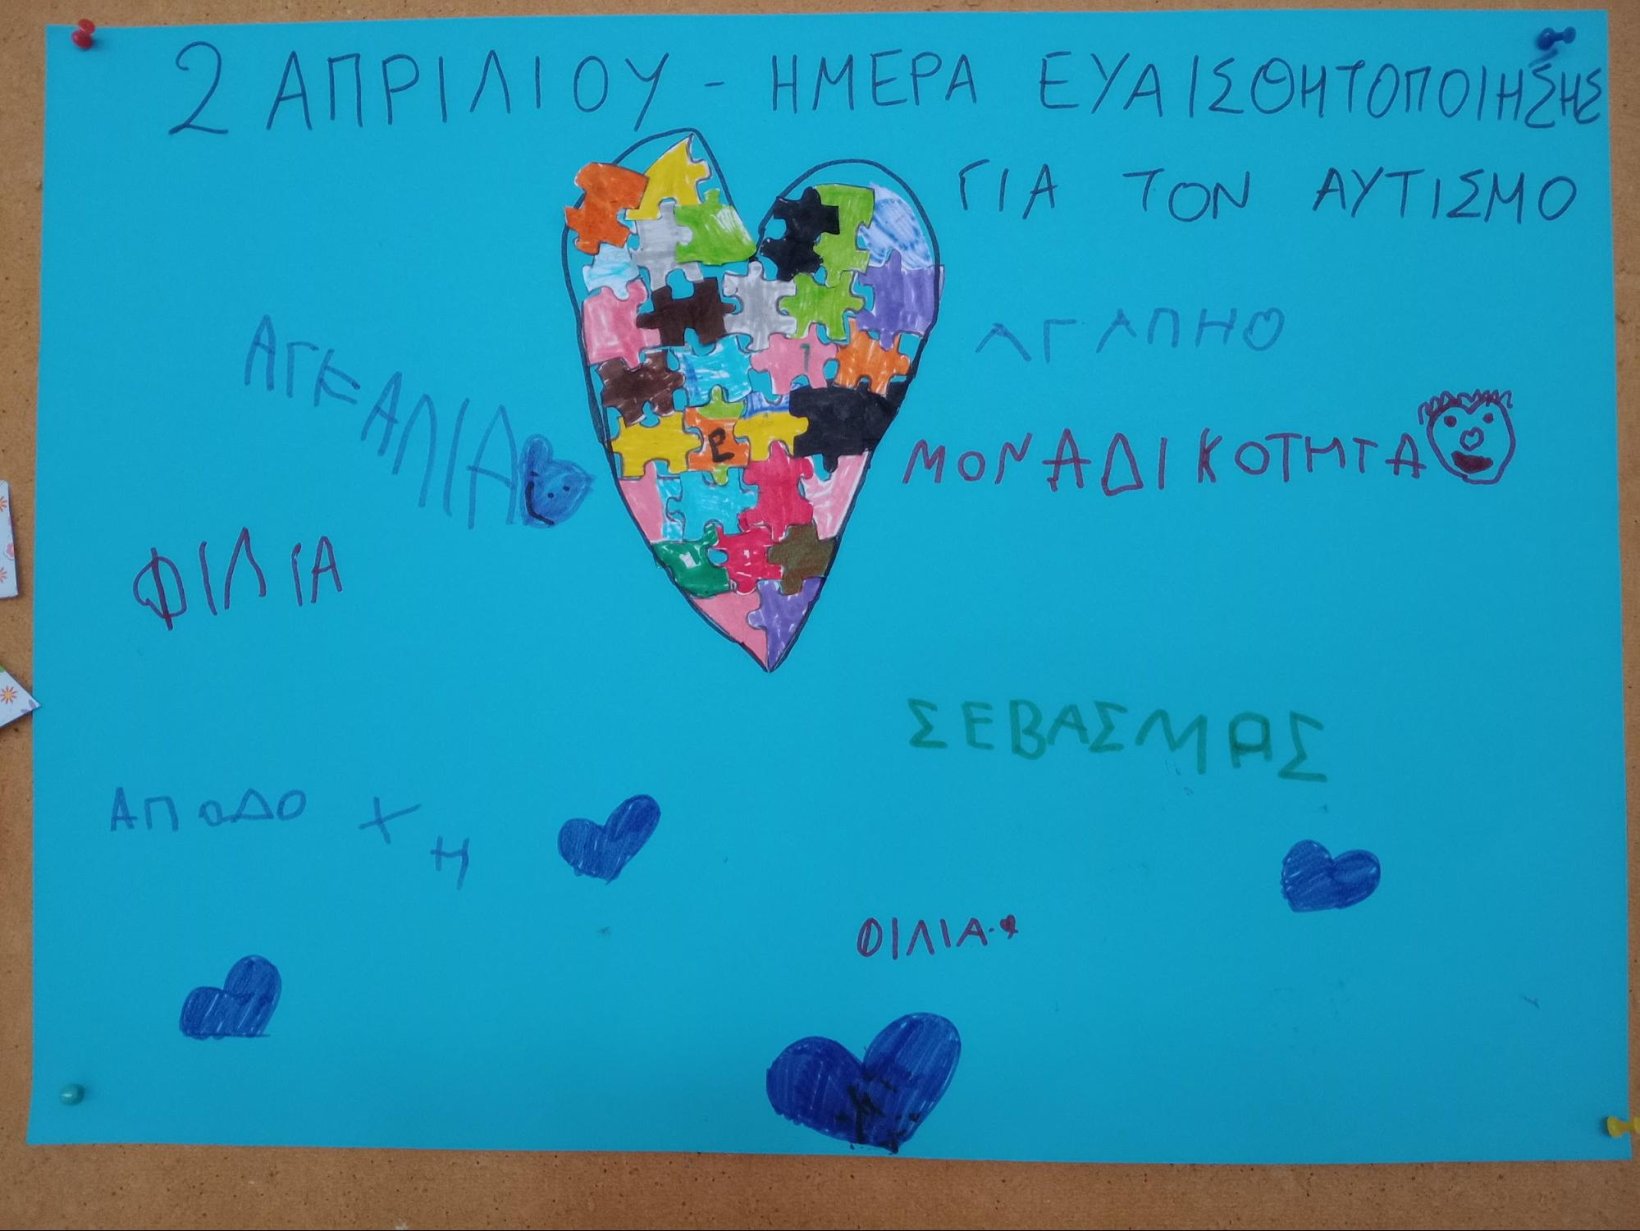 2 ΑΠΡΙΛΙΟΥ - ΗΜΕΡΑ ΕΥΑΙΣΘΗΤΟΠΟΙΗΣΗΣ
ΓΙΑ ΤΟΝ ΑΥΤΙΣΜΟ
ΑΓΚΑΛΙΑ
ΑΓΑΠΗΘ
ΜΟΝΑΔΙΚΟΤΗΤΑ
ΦΙΛΙΑ
ΣΕΒΑΣΜΑΣ
ΑΠΟΔΟ Χ
Η
ΦΙΛΙΑ